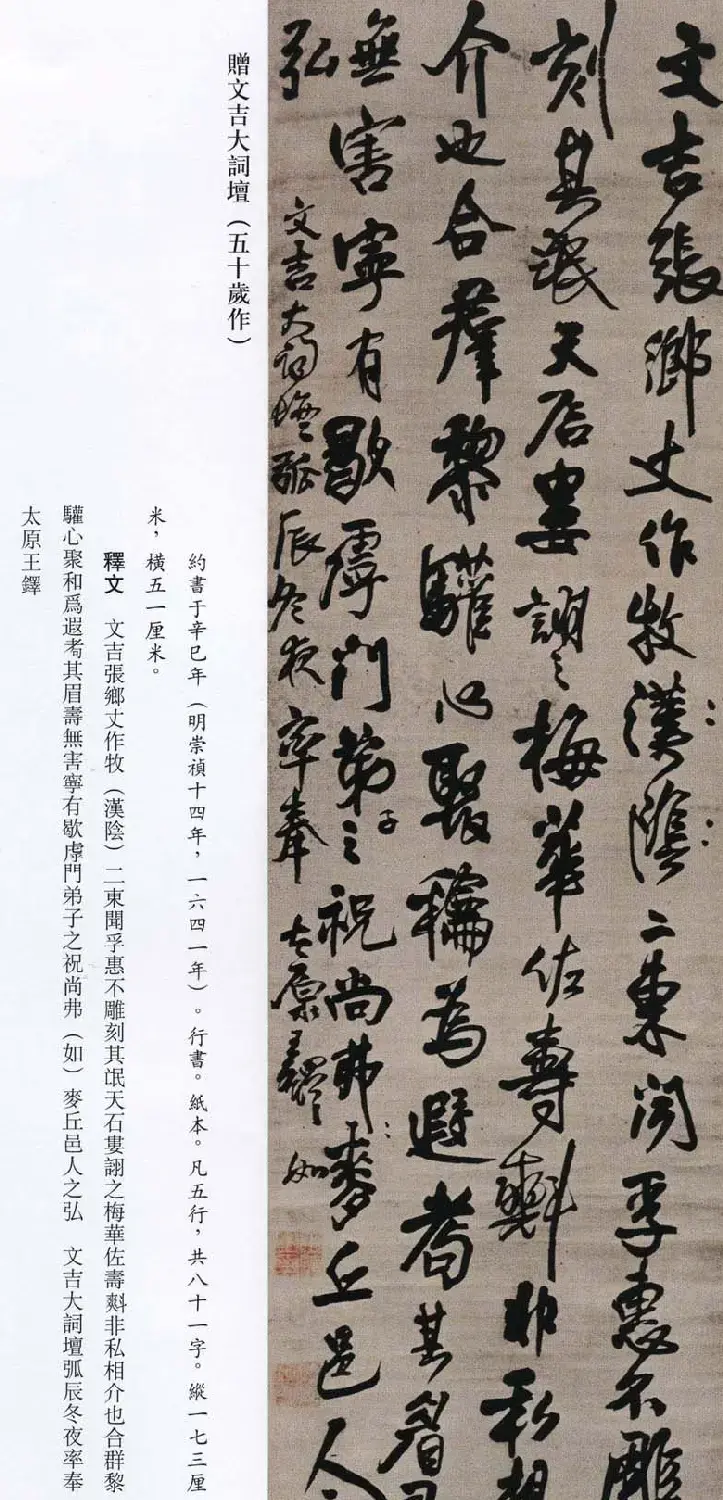 文吉張鄉丈作牧漢陰二東聞孚惠不雕
刻其氓天婁詡之梅華佐壽㪺非私相
介也合群黎驩心聚為遐耇其眉
無害寧有歇虖門弟子之祝尚弗麥丘邑人
弘 文吉大詞壇弧辰冬夜率奉 太原王鐸 如
贈文吉大詞壇（五十歲作）
約書于辛巳年（明崇禎十四年，一六四一年）。行書。紙本。凡五行，共八十一字。縱一七三厘
米，橫五一厘米。
釋文 文吉張鄉丈作牧（漢陰）二東聞孚惠不雕刻其氓天石婁詡之梅華佐壽㪺非私相介也合群黎
驩心聚和爲遐耇其眉壽無害寧有歇虖門弟子之祝尚弗（如）麥丘邑人之弘 文吉大詞壇弧辰冬夜率奉
太原王鐸